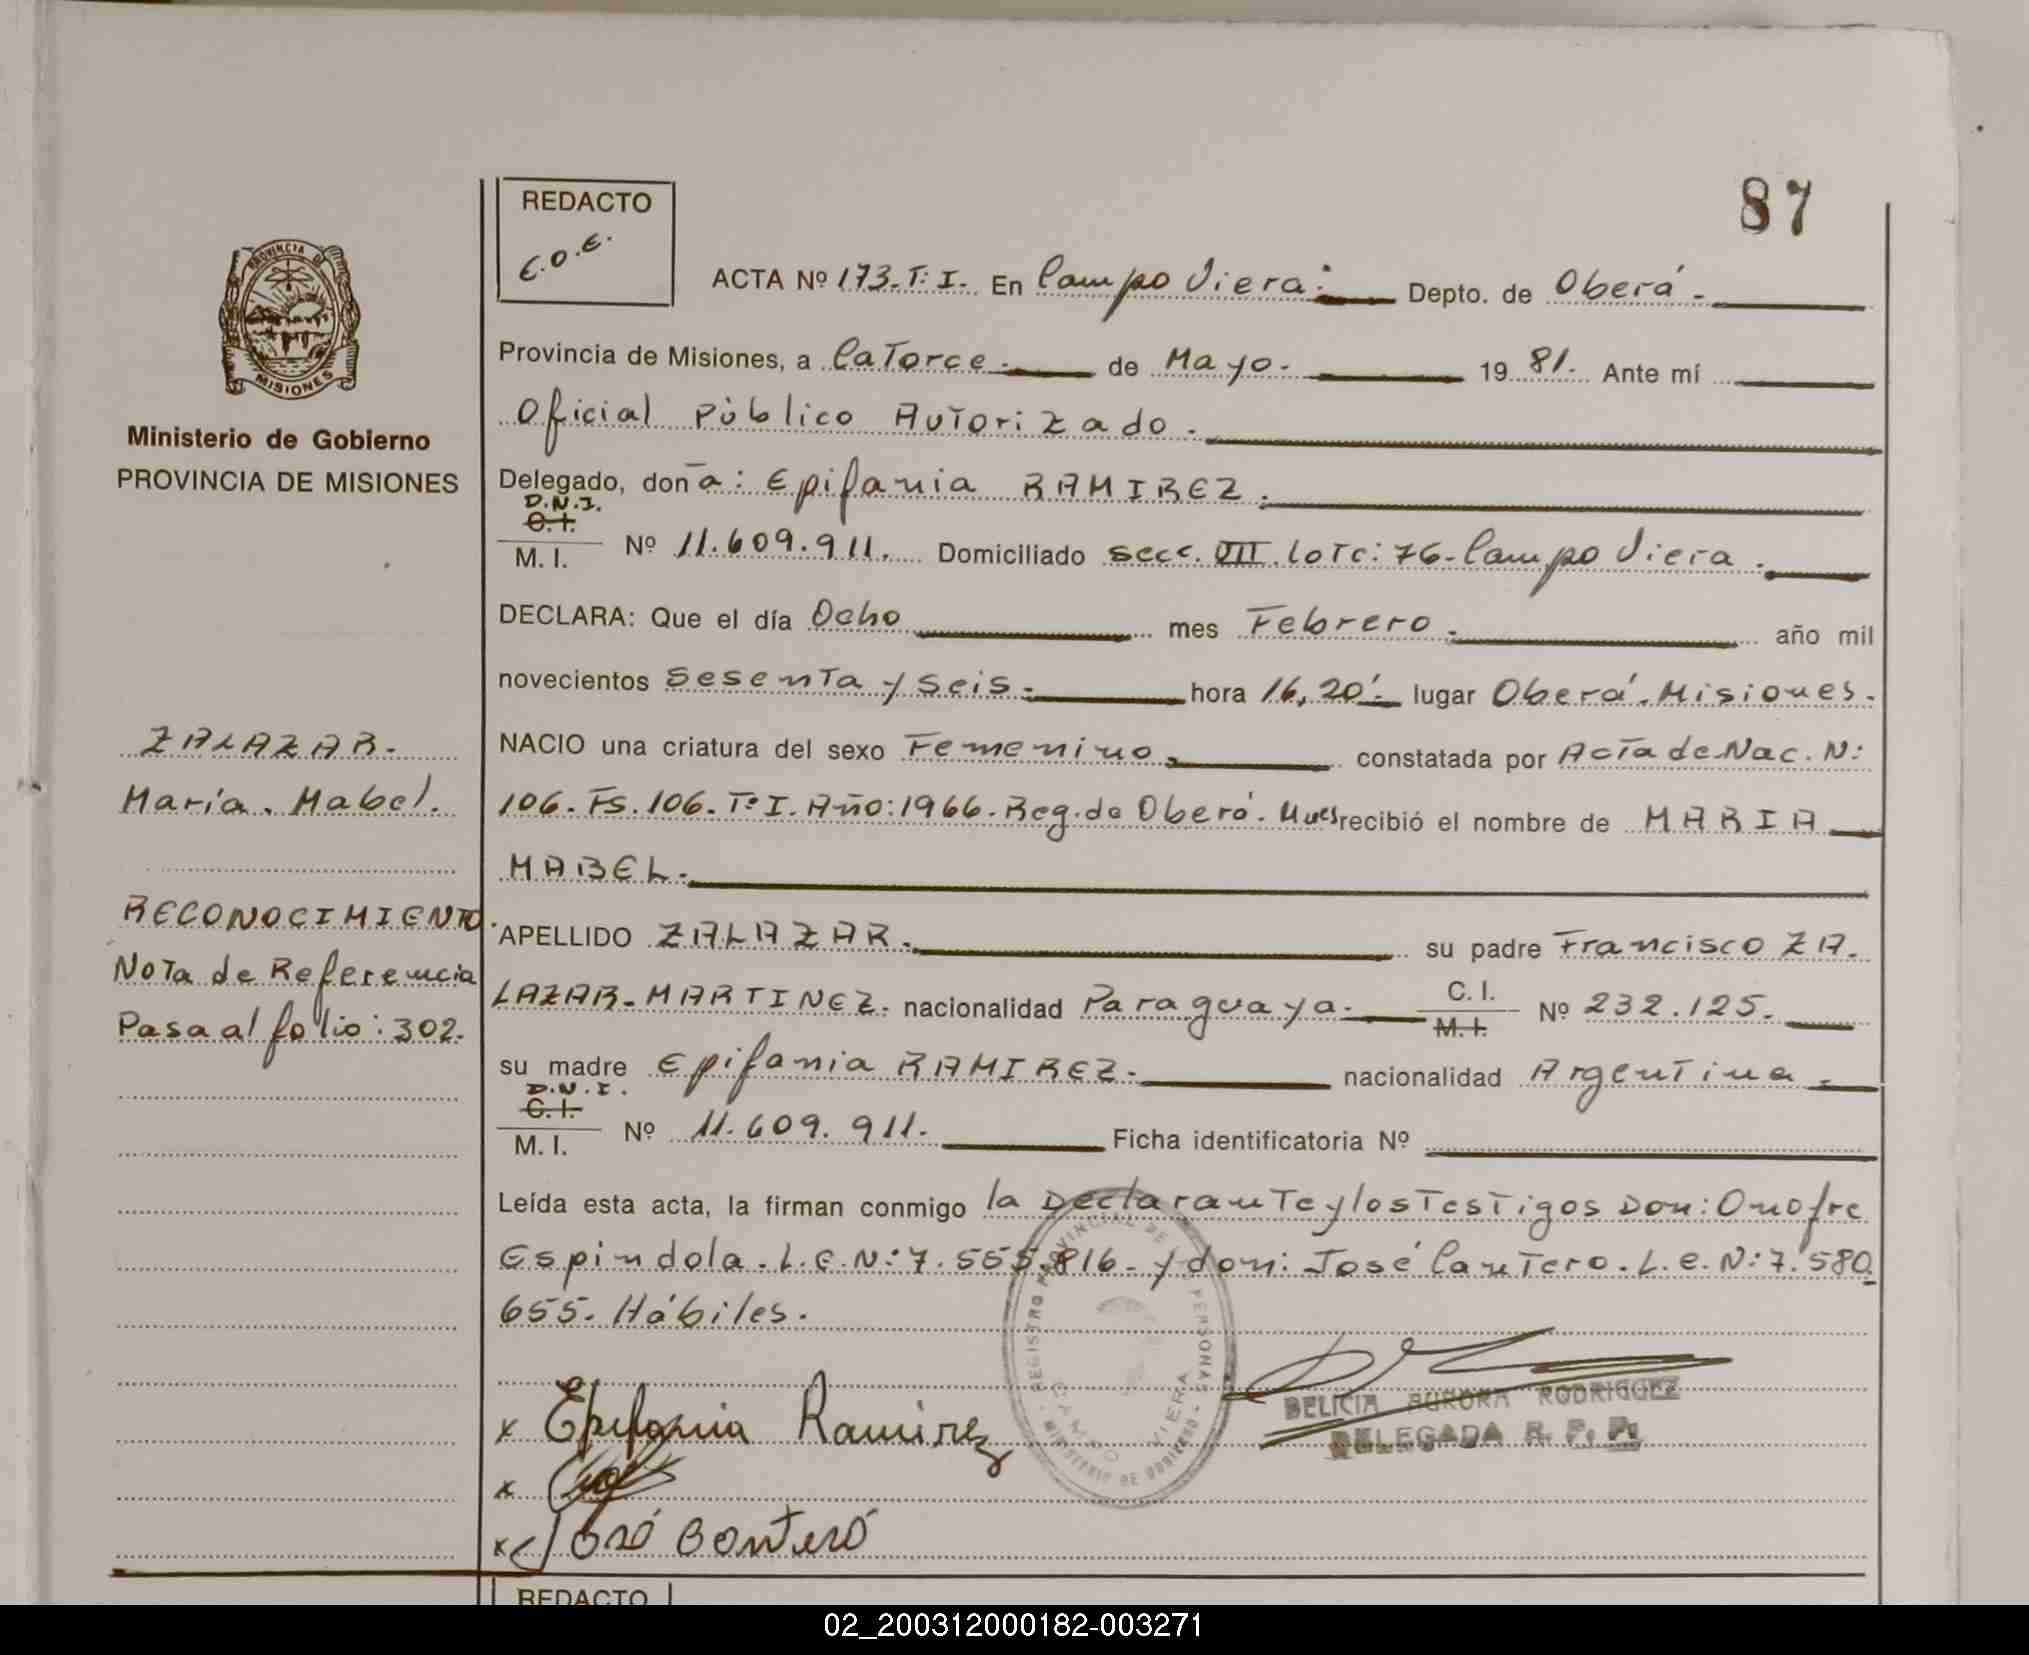 87
REDACTO
E.O.E.
ACTA Nº 173.T:I. En Campo Viera. Depto. de Oberá.
PROVINCIA DE
MISIONES
Ministerio de Gobierno
PROVINCIA DE MISIONES
Provincia de Misiones, a CaTorce. de Mayo. 19 81. Ante mí
Oficial Público AuTorizado.
Delegado, don a: Epifania RAMIREZ.
D.N.I.
C.I.
M.I. Nº 11.609.911. Domiciliado secc. VII. loTe: 76. Campo Viera.
DECLARA: Que el día Ocho mes Febrero. año mil
novecientos SesenTa y Seis. hora 16,20'. lugar Oberá. Misiones.
NACIO una criatura del sexo Femenino. constatada por AcTa de Nac. N:
106. Fs. 106. Tº I. Año: 1966. Reg. de Oberá. Mnes recibió el nombre de MARIA
MABEL.
APELLIDO ZALAZAR. su padre Francisco ZA.
LAZAR. MARTINEZ. nacionalidad Paraguaya. C.I.
M.I. Nº 232.125.
su madre Epifania RAMIREZ. nacionalidad ArgenTina.
D.N.I.
C.I.
M.I. Nº 11.609.911. Ficha identificatoria Nº
Leída esta acta, la firman conmigo la DeclaranTe y los TesTigos Don: Onofre
Espindola. L.E.N: 7.555.816. y don: José CanTero. L.e.N: 7.580.
655. Hábiles.
ZALAZAR.
María. Mabel.
RECONOCIMIENTO.
NoTa de Referencia
Pasa al folio: 302.
x Epifania Ramirez
x
x José Conteró
REGISTRO PROVINCIAL DE PERSONAS
CAMPO VIERA
MINISTERIO DE GOBIERNO
DELICIA AURORA RODRIGUEZ
DELEGADA R. P. P.
REDACTO
02_200312000182-003271